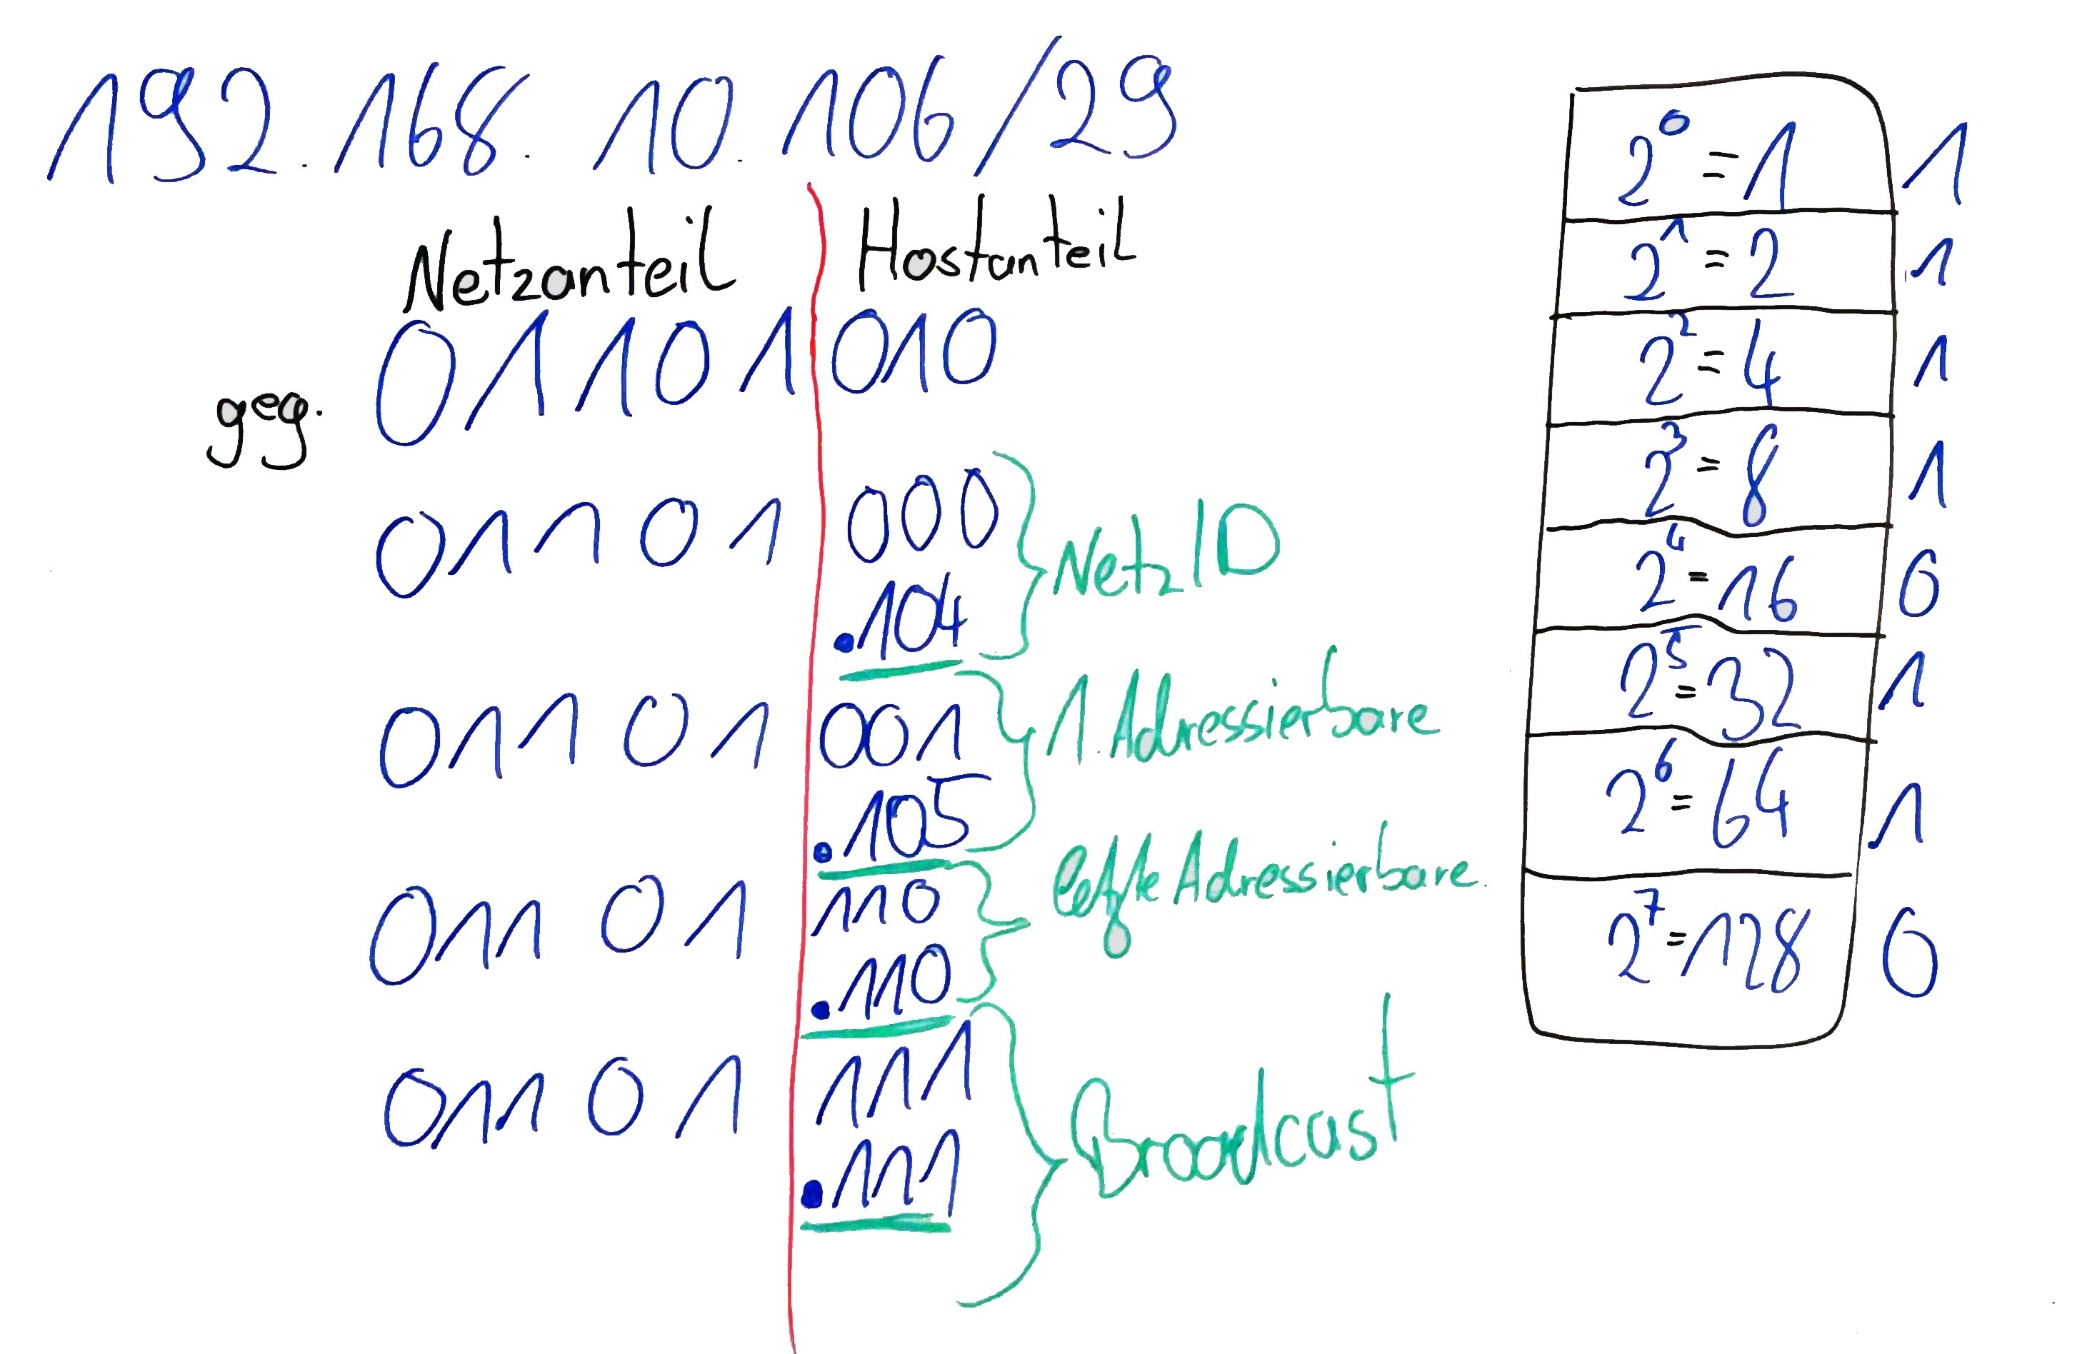 192.168.10.106/29
Netzanteil Hostanteil
geg. 01101 010
01101 000
.104
NetzID
01101 001
.105
1. Adressierbare
01101 110
.110
letzte Adressierbare.
01101 111
.111
Broadcast
2⁰ = 1 1
2¹ = 2 1
2² = 4 1
2³ = 8 1
2⁴ = 16 0
2⁵ = 32 1
2⁶ = 64 1
2⁷ = 128 0